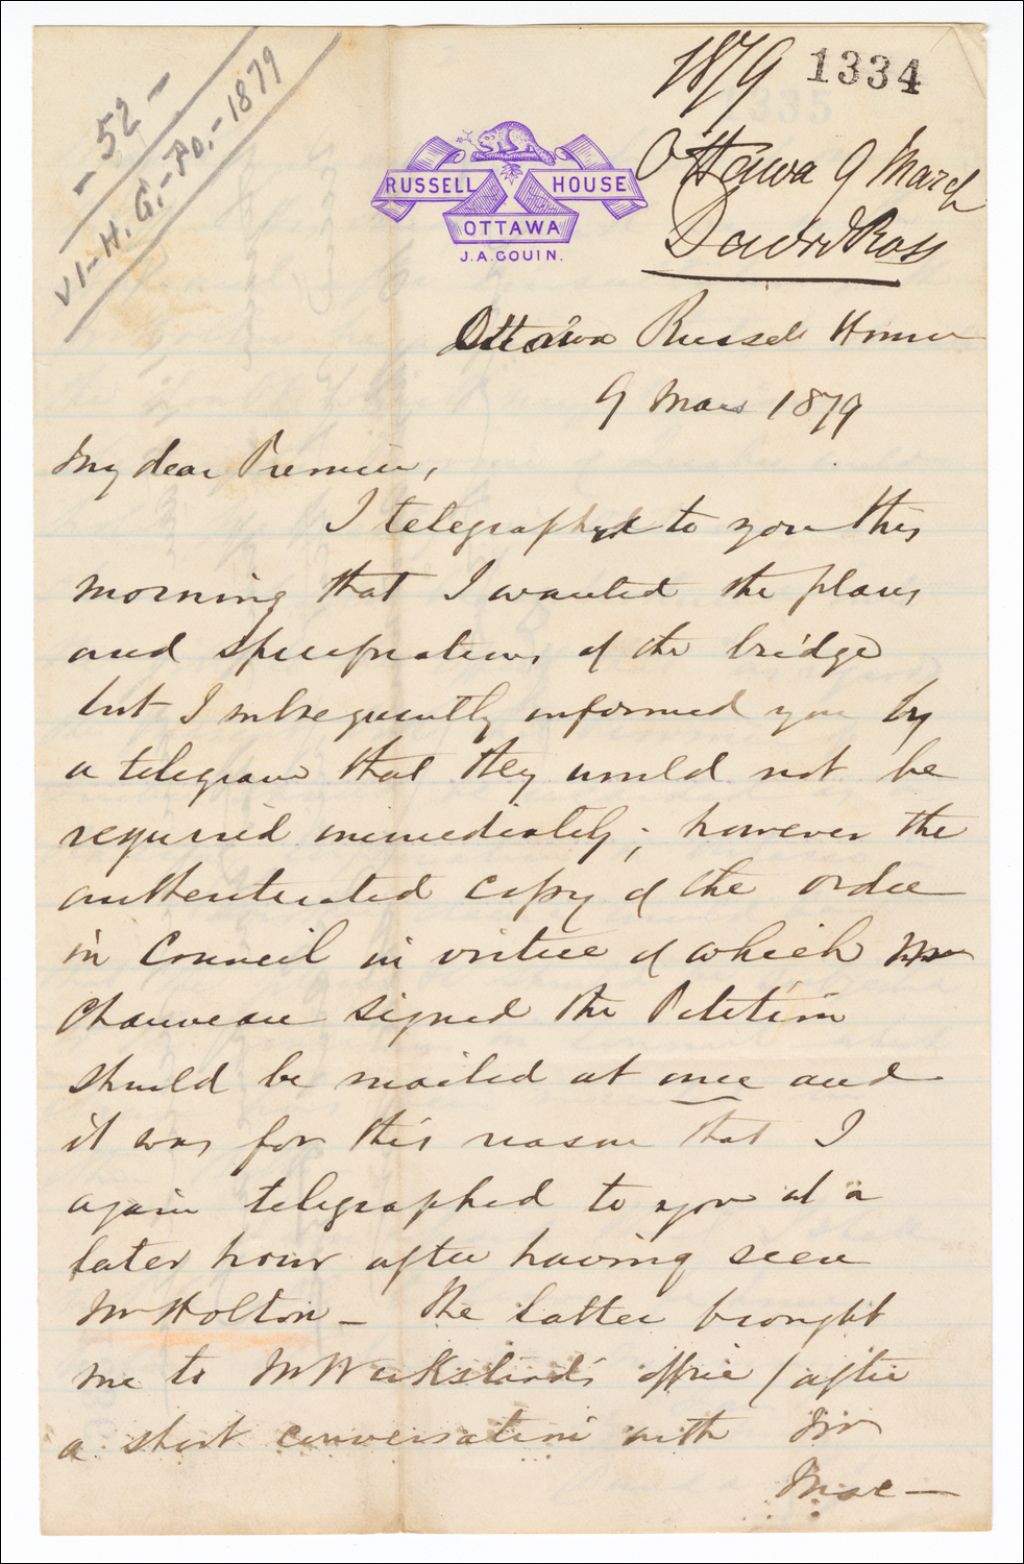 - 52 -
VI-H.G.-Po.-1879
1879 1334
Ottawa 9 March
David Ross
RUSSELL HOUSE
OTTAWA
J.A. GOUIN.
Ottawa Russell House
9 Mars 1879
My dear Premier,
I telegraphed to you this
morning that I wanted the plans
and specifications of the bridge
but I subsequently informed you by
a telegram that they would not be
required immediately; however the
authenticated copy of the order
in Council in virtue of which Mr
Chauveau signed the Petition
should be mailed at once and
it was for this reason that I
again telegraphed to you at a
later hour after having seen
Mr Holton - The latter brought
me to Mr Wicksteed's office / after
a short conversation with Mr
Mac -